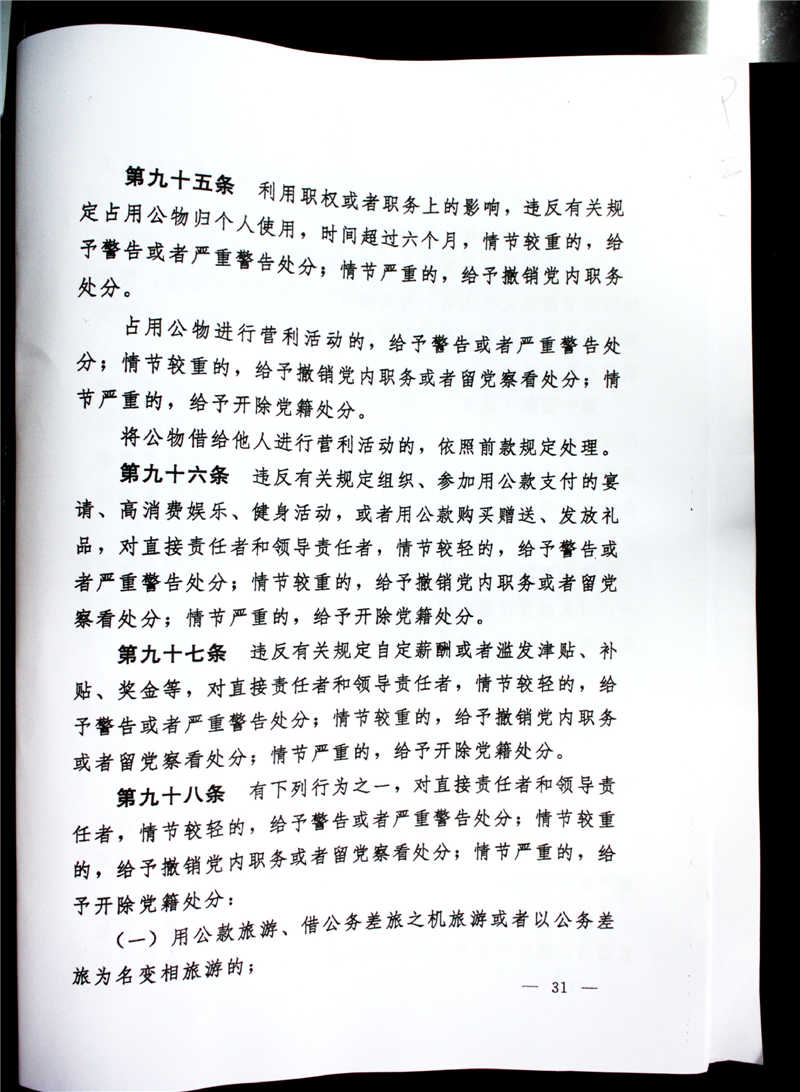 第九十五条 利用职权或者职务上的影响，违反有关规
定占用公物归个人使用，时间超过六个月，情节较重的，给
予警告或者严重警告处分；情节严重的，给予撤销党内职务
处分。
占用公物进行营利活动的，给予警告或者严重警告处
分；情节较重的，给予撤销党内职务或者留党察看处分；情
节严重的，给予开除党籍处分。
将公物借给他人进行营利活动的，依照前款规定处理。
第九十六条 违反有关规定组织、参加用公款支付的宴
请、高消费娱乐、健身活动，或者用公款购买赠送、发放礼
品，对直接责任者和领导责任者，情节较轻的，给予警告或
者严重警告处分；情节较重的，给予撤销党内职务或者留党
察看处分；情节严重的，给予开除党籍处分。
第九十七条 违反有关规定自定薪酬或者滥发津贴、补
贴、奖金等，对直接责任者和领导责任者，情节较轻的，给
予警告或者严重警告处分；情节较重的，给予撤销党内职务
或者留党察看处分；情节严重的，给予开除党籍处分。
第九十八条 有下列行为之一，对直接责任者和领导责
任者，情节较轻的，给予警告或者严重警告处分；情节较重
的，给予撤销党内职务或者留党察看处分；情节严重的，给
予开除党籍处分：
（一）用公款旅游、借公务差旅之机旅游或者以公务差
旅为名变相旅游的；
— 31 —